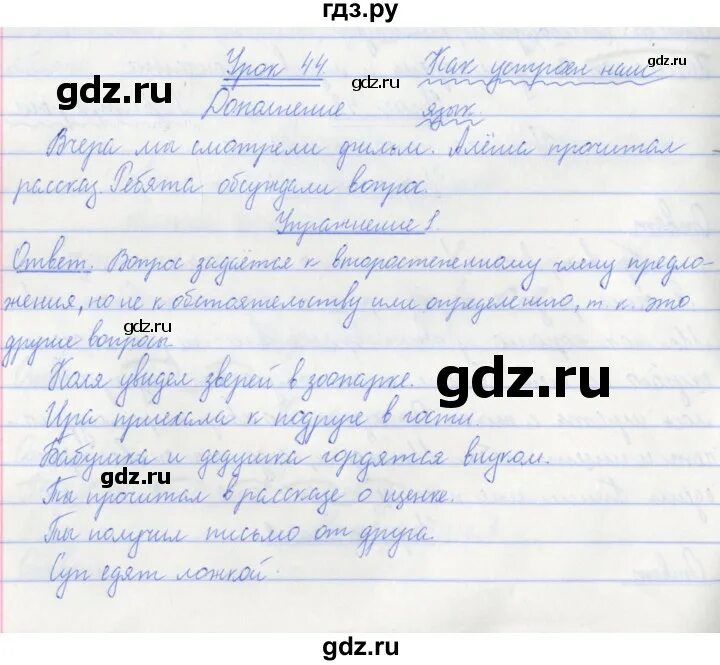 гдз.ру
Урок 44 Как устроен наш
gdz.ru
gdz.ru
Дополнение язык
gdz.ru
Вчера мы смотрели фильм. Алёша прочитал
рассказ. Ребята обсуждали вопрос.
Упражнение 1.
Ответ. Вопрос задаётся к второстепенному члену предло-
gdz.ru
жения, но не к обстоятельству или определению, т. к. это
gdz.ru
другие вопросы.
Коля увидел зверей в зоопарке.
gdz.ru
Ира приехала к подруге в гости.
Бабушка и дедушка гордятся внуком.
gdz.ru
Ты прочитал в рассказе о щенке.
gdz.ru
Ты получил письмо от друга.
Суп едят ложкой.
gdz.ru